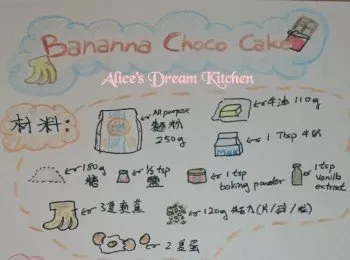 Bananna Choco Cake
Alice's Dream Kitchen
材料:
All purpose
麵粉
250g
牛油 110g
Milk
1 Tbsp 牛奶
180g
糖
½ tsp
鹽
1 tsp
baking powder
1 tsp
vanilla
extract
3隻熟蕉
120g
2隻蛋